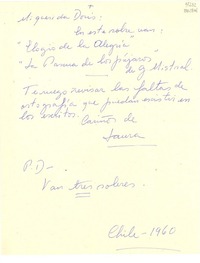 Mi querida Doris:
En este sobre van:
"Elogio de la Alegría"
"La Pascua de los pájaros"
de G Mistral.
Te ruego revisar las faltas de
ortografía que puedan existir en
los escritos.
Cariños de
Laura
P.D-.
Van tres sobres.
Chile-1960